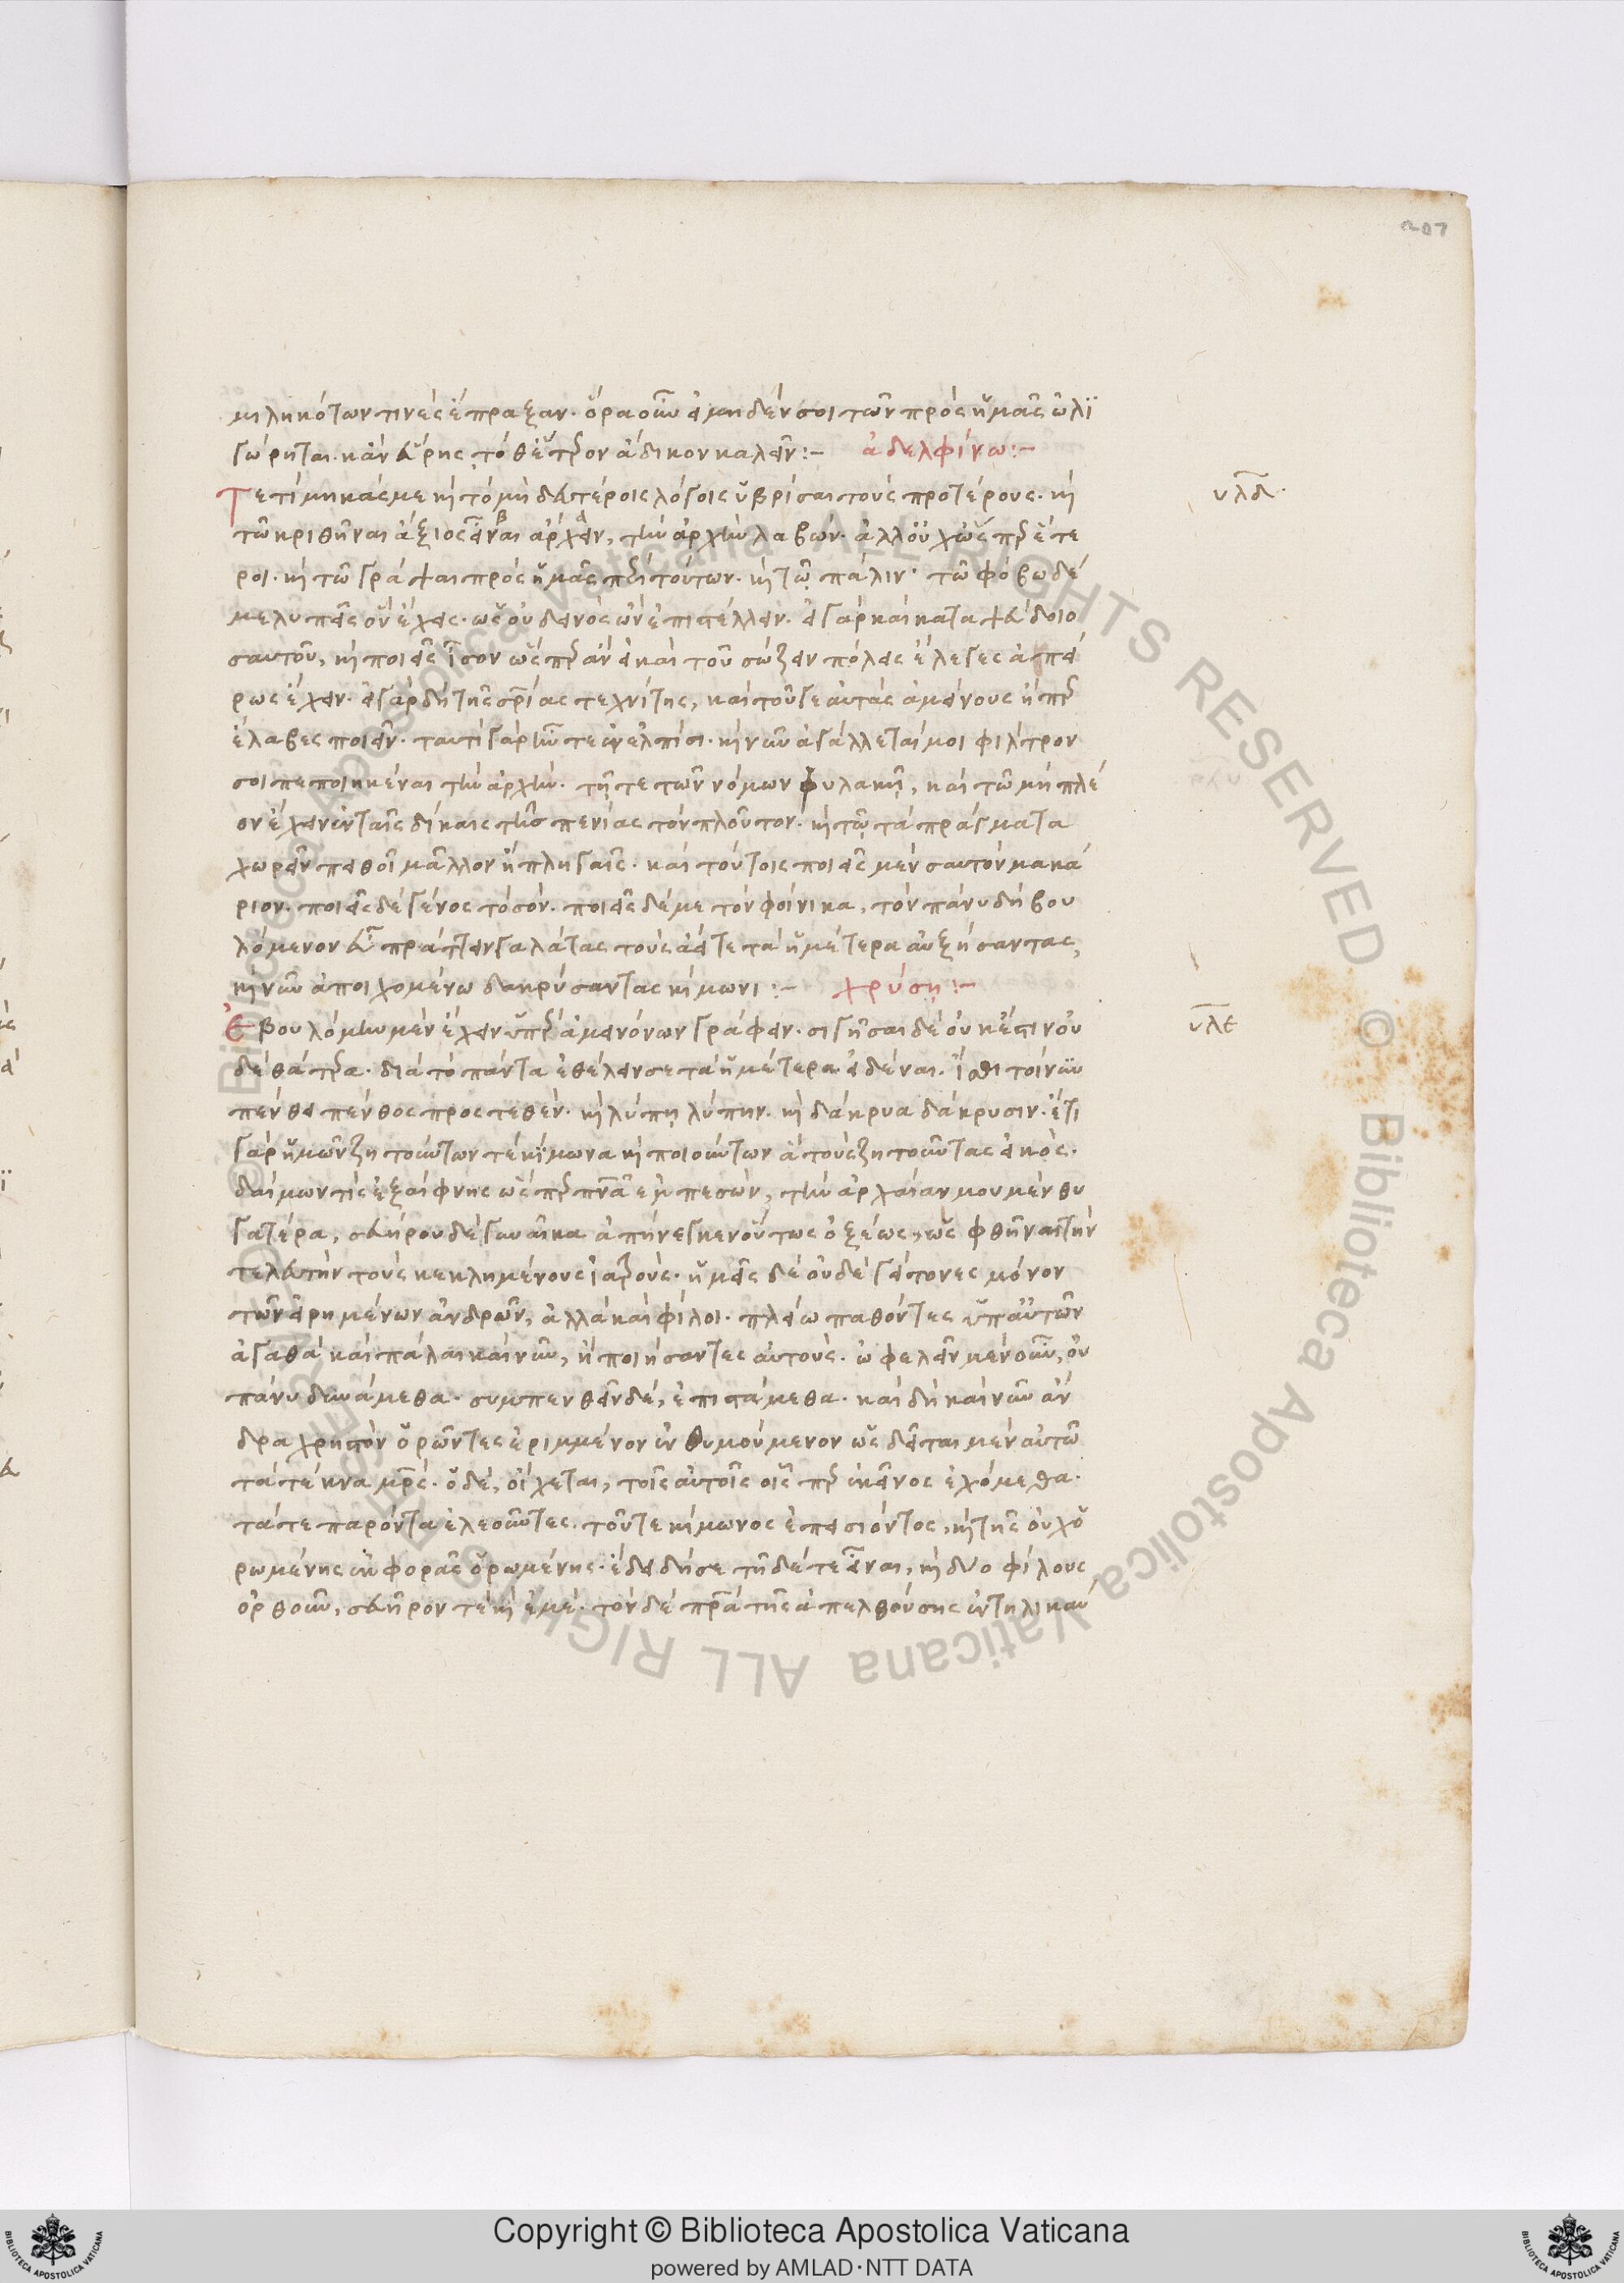 207
μιληκότων τινὲς ἔπραξαν. ὅρα οὖν εἰ μηδέν σοι τῶν πρὸς ἡμᾶς ὠλι
γώρηται. κἂν εὕρῃς, τὸ θἄτερον ἄδικον καλεῖν :- ἀδελφίνω :-
Τετίμηκάς με καὶ τὸ μὴ δευτέροις λόγοις ὑβρίσαι τοὺς προτέρους. καὶ υλδ.
τῶ κριθῆναι ἄξιος εἶναι ἄρχειν, τὴν ἀρχὴν λαβών. ἀλλ' οὐχ ὥσπερ ἕτε
ροι. καὶ τῶ γράψαι πρὸς ἡμᾶς περὶ τούτων. καὶ τῶ πάλιν. τῶ φόβω δέ
με λυπεῖς ὃν ἔχεις. ὡς οὐ δεινὸς ὢν ἐπιστέλλειν. εἰ γὰρ καὶ καταψεύδοιο
σαυτοῦ, καὶ ποιεῖς ἴσον ὥσπερ ἂν εἰ καὶ τοῦ σώζειν πόλεις ἔλεγες ἀπεί
ρως ἔχειν. εἶ γὰρ δὴ τῆς σωτηρίας τεχνίτης, καὶ τοῦ γε αὐτὰς ἀμείνους ἥπερ
ἔλαβες ποιεῖν. ταυτὶ γὰρ ἦν τε ἐν ἐλπίσι. καὶ νῦν ἀγάλλεταί μοι φίλτρον
σοι πεποιηκέναι τὴν ἀρχήν. τῇ τε τῶν νόμων φυλακῇ, καὶ τῶ μὴ πλέ
ον ἔχειν ἐν ταῖς δίκαις τῆς πενίας τὸν πλοῦτον. καὶ τῶ τὰ πράγματα
χωρεῖν πειθοῖ μᾶλλον ἢ πληγαῖς. καὶ τούτοις ποιεῖς μὲν σαυτὸν μακά
ριον. ποιεῖς δὲ γένος τὸ σόν. ποιεῖς δέ με τὸν φοίνικα, τὸν πάνυ δὴ βου
λόμενον εὖ πράττειν γαλάτας τοὺς ἀεί τε τὰ ἡμέτερα αὐξήσαντας,
καὶ νῦν ἀποιχομένω δακρύσαντας κίμωνι :- χρύσῃ :-
Ἐβουλόμην μὲν ἔχειν ὑπὲρ ἀμεινόνων γράφειν. σιγῆσαι δὲ οὐκ ἔστιν οὐ υλε
δὲ θάτερα. διὰ τὸ πάντα ἐθέλειν σε τὰ ἡμέτερα εἰδέναι. ἴσθι τοίνυν
πένθει πένθος προστεθέν. καὶ λύπῃ λύπην. καὶ δάκρυα δάκρυσιν. ἔτι
γὰρ ἡμῶν ζητούντων τε κίμωνα καὶ ποιούντων ἃ τοὺς ζητοῦντας εἰκός.
δαίμων τις ἐξαίφνης ὥσπερ πνεῦμα ἐμπεσών, τὴν ἀρχαίαν μου μὲν θυ
γατέρα, σευήρου δὲ γυναῖκα ἀπήνεγκεν οὕτως ὀξέως, ὡς φθῆναι τὴν
τελευτὴν τοὺς κεκλημένους ἰατρούς. ἡμεῖς δὲ οὐδὲ γείτονες μόνον
τῶν εἰρημένων ἀνδρῶν, ἀλλὰ καὶ φίλοι. πλείω παθόντες ὑπ' αὐτῶν
ἀγαθὰ καὶ πάλαι καὶ νῦν, ἢ ποιήσαντες αὐτούς. ὠφελεῖν μὲν οὖν, οὐ
πάνυ δυνάμεθα. συμπενθεῖν δὲ, ἐπιστάμεθα. καὶ δὴ καὶ νῦν ἄν
δρα χρηστὸν ὁρῶντες ἐριμμένον ἐνθυμούμενον ὡς δεῖται μὲν αὐτῶ
τὰ τέκνα μητρός. ἡ δὲ, οἴχεται, τοῖς αὐτοῖς οἷσπερ ἐκεῖνος ἐχόμεθα.
τά τε παρόντα ἐλεοῦντες. τοῦ τε κίμωνος ἐπεισιόντος, καὶ τῆς οὐχ ὁ
ρωμένης συμφορᾶς ὁρωμένης. ἔδει δή σε τῇδέ τε εἶναι, καὶ δύο φίλους
ὀρθοῦν, σευῆρόν τε καὶ ἐμέ. τὸν δὲ μετὰ τῆς ἀπελθούσης ἐν τηλικαύ